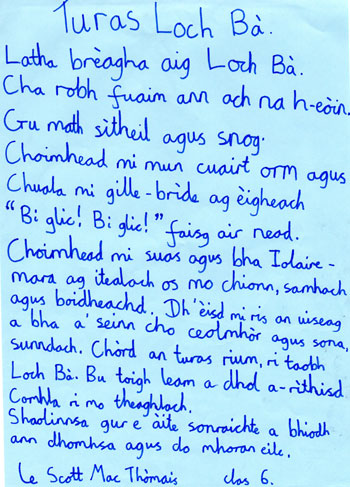 Turas Loch Bà.
Latha brèagha aig Loch Bà.
Cha robh fuaim ann ach na h-eòin.
Gu math sìtheil agus snog.
Choimhead mi mun cuairt orm agus
Chuala mi gille-brìde ag èigheach
"Bi glic! Bi glic!" faisg air nead.
Choimhead mi suas agus bha Iolaire-
mara ag itealach os mo chionn, samhach
agus boidheachd. Dh'èisd mi ris an uiseag
a bha a' seinn cho ceolmhòr agus sona,
sunndach. Chòrd an turas rium, ri taobh
Loch Bà. Bu toigh leam a dhol a-rithisd
Comhla ri mo theaghlach.
Shaolinnsa gur e àite sonraichte a bhiodh
ann dhomhsa agus do mhoran eile.
Le Scott Mac Thòmais clas 6.